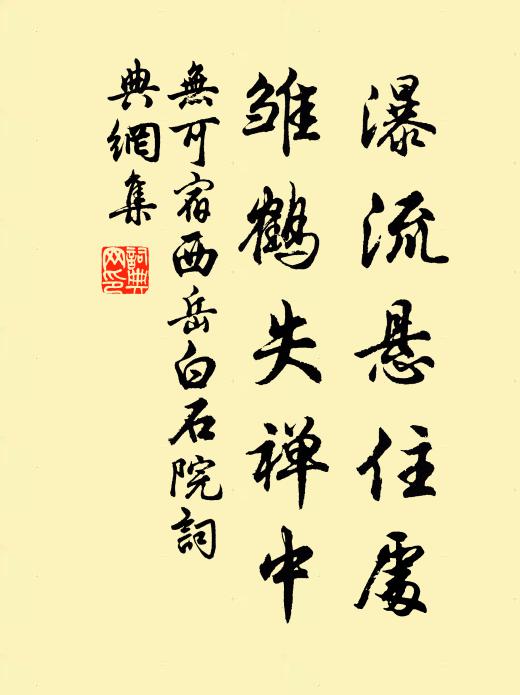 瀑流悬住處
雏鶴失禅中
無可宿西岳白石院詞
典網集
詞典网印